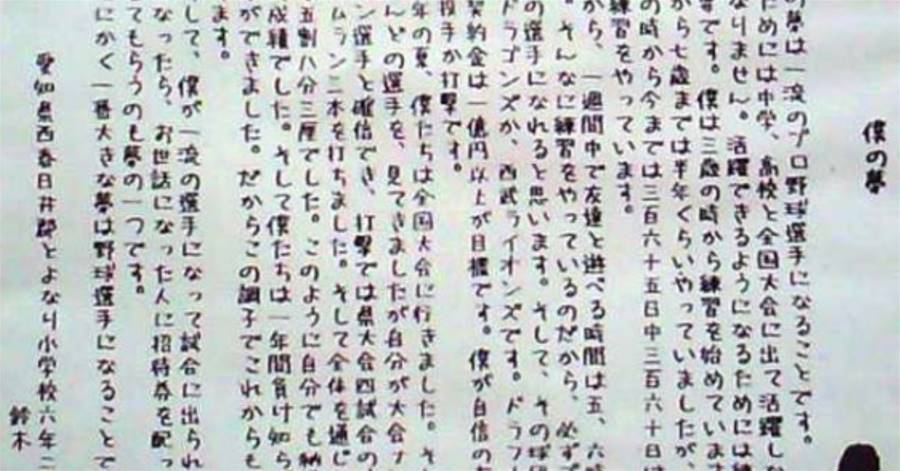 僕の夢
の夢は一流のプロ野球選手になることです。
ためには中学、高校と全国大会に出て活躍しな
なりません。活躍できるようになるためには
です。僕は三歳の時から練習を始めています
から七歳までは半年くらいやっていましたが、
の時から今までは三百六十五日中三百六十日は
練習をやっています。
から、一週間中で友達と遊べる時間は五、六時
。そんなに練習をやっているのだから、必ずプ
の選手になれると思います。そして、その球団
ドラゴンズか、西武ライオンズです。ドラフト
契約金は一億円以上が目標です。僕が自信の
投手か打撃です。
年の夏、僕たちは全国大会に行きました。そ
んどの選手を、見てきましたが自分が大会ナ
ン選手と確信でき、打撃では県大会四試合の
ムラン三本を打ちました。そして全体を通じ
五割八分三厘でした。このように自分でも納
成績でした。そして僕たちは一年間負け知ら
ができました。だからこの調子でこれからも
ます。
して、僕が一流の選手になって試合に出られ
なったら、お世話になった人に招待券を配っ
てもらうのも夢の一つです。
にかく一番大きな夢は野球選手になることで
愛知県西春日井郡とよなり小学校六年二
鈴木